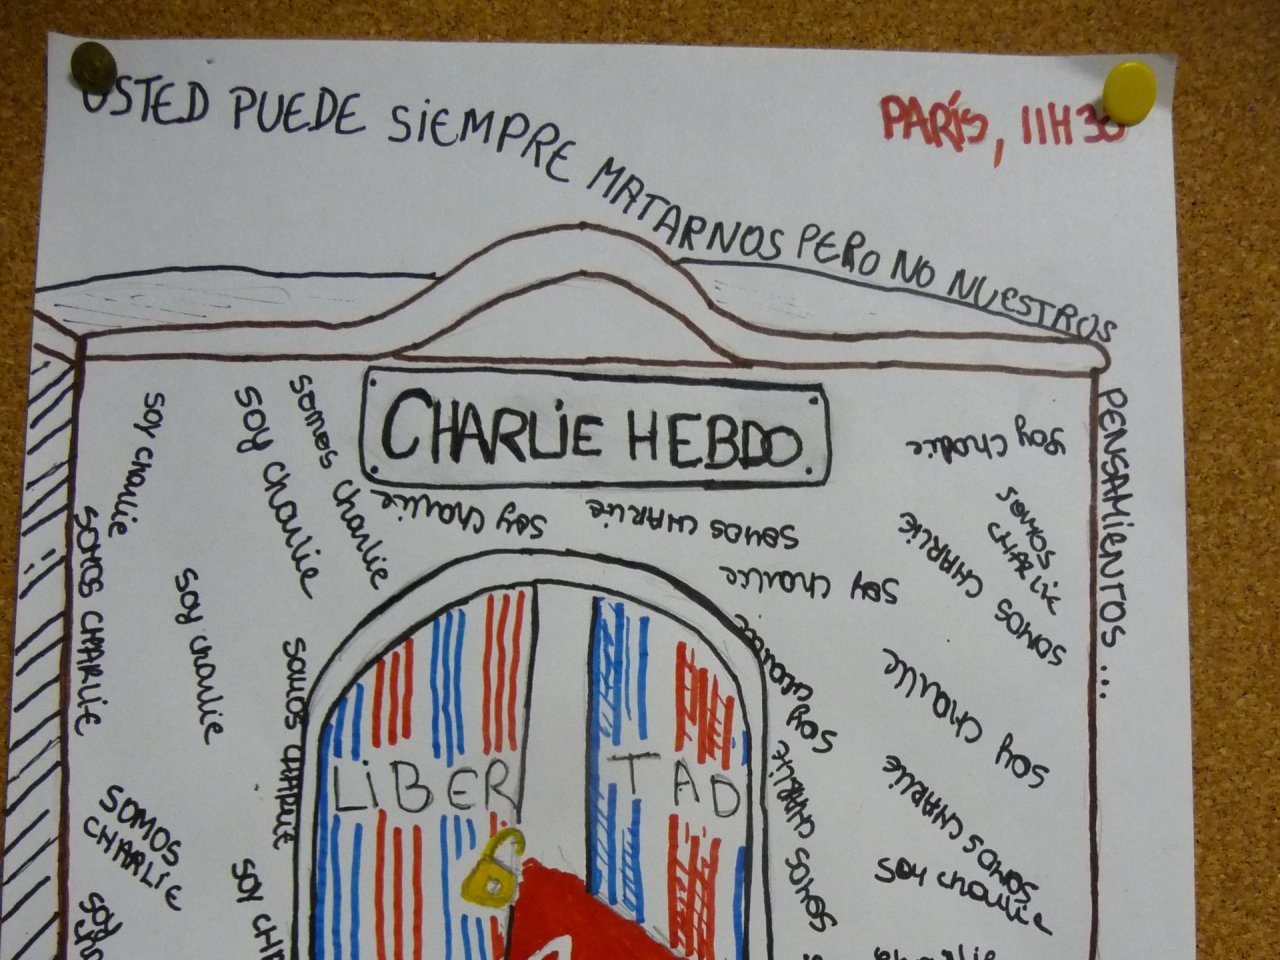 USTED PUEDE SIEMPRE MATARNOS PERO NO NUESTROS
PENSAMIENTOS...
PARÍS, 11H30
CHARLIE HEBDO
SOY CHARLIE
SOY CHARLIE
SOMOS CHARLIE
SOY CHARLIE
SOMOS CHARLIE
SOY CHARLIE
SOY CHARLIE
SOMOS
CHARLIE
SOMOS CHARLIE
SOMOS CHARLIE
SOY CHARLIE
SOY CHARLIE
SOMOS CHARLIE
SOY CHARLIE
SOMOS CHARLIE
LIBER TAD
SOY CHARLIE
SOMOS CHARLIE
SOMOS CHARLIE
SOMOS
CHARLIE
SOY CHARLIE
SOY CHARLIE
SOY